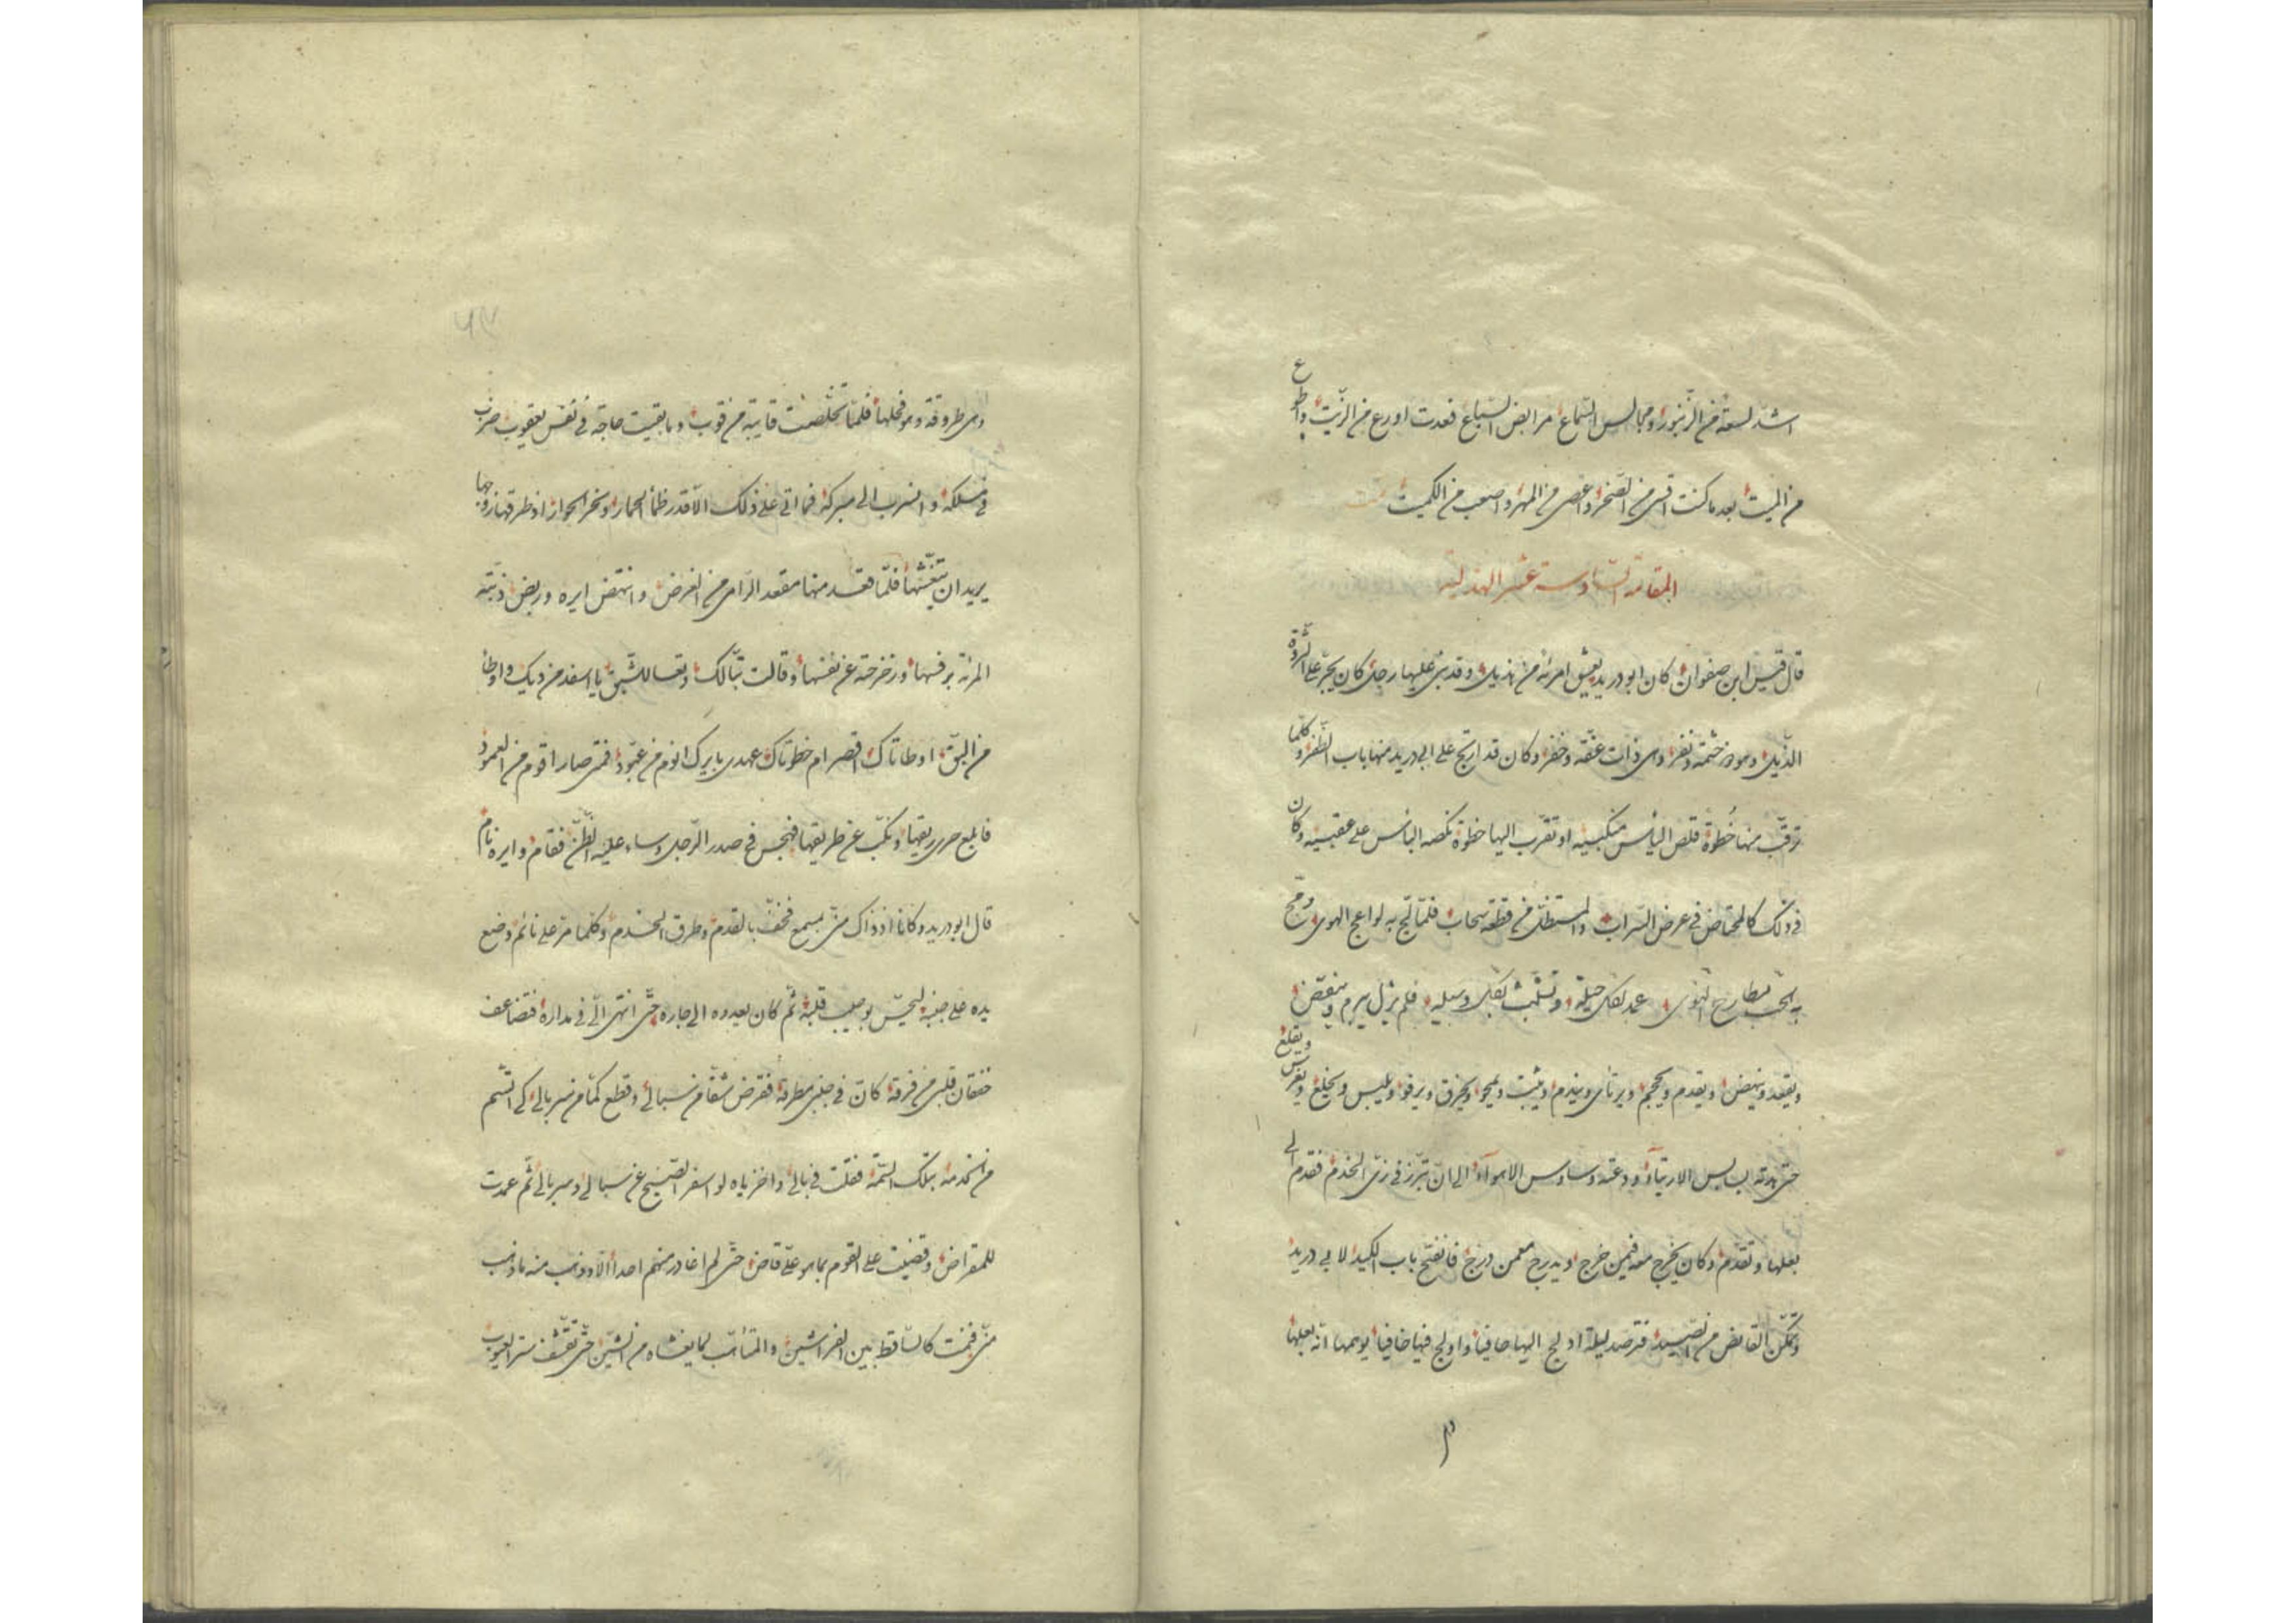 اشدّ لسعة من الزنبور ومجالس السماع مرابض السباع فعدت اورع من الزيت واطوع
من الميت بعد ما كنت اقسى من الصخر واعصى من المهر واصعب من الكميت تمت
المقامة السادسة عشر الهذلية
قال قيس ابن صفوان كان ابو دريد يعشق امرئة من هذيل وقد بنى عليها رجل كان يجر على الثروة
الذيل وهو ذو حشمة ونفر وهى ذات عفّة وخفر وكان قد ارتج على ابى دريد منها باب الظفر وكلما
ترقّب منها خُطوة قلص اليأس منكبيه او تقرب اليها خطوة نكصه البأس على عقبيه وكان
فى ذلك كالمخاض فى عرض السراب والمستظل من قطعة سحاب فلمّا لجّ به لواعج الهوى وزجّ
به الحب مطارح النوى عمد لكل حيلة وتشبّث بكل وسيلة فلم يزل يبرم وينقض
ويقعد وينهض ويقدم ويحجم ويرتأى ويندم ويثبت ويمحو ويخرق ويرفو ويلبس ويخلع ويغرس ويقلع
حتى الارتيآء ودعته وساوس الاهوآء الى ان تبرّز فى زىّ الخدم فقدم الى
بعلها وتقدّم وكان يخرج معه فيمن خرج ويدرج معمن درج فانفتح باب الكيد لابى دريد
وتمكّن القانص من الصيد فترصد ليلة ادلج اليها حافيا واولج فيها خافيا يوهمها انّه بعلها
وهى طروقة وهو فحلها فلمّا تخلّصت قايبة من قوب وما بقيت حاجة فى نفس يعقوب ضرب
فى مسلكه وانسرب الى مبركه فما اتى على ذلك الّا قدر ظمأ الحمار ونخر الحوار اذ طرقها زوجها
يريد ان يتغشّها فلمّا قعد منها مقعد الرامى من الغرض وانتهض ايره وربض ذبّته
المرئة برفسها وزحزحته عن نفسها وقالت تبّا لك وتعسا للشبق يا اسفد من ديك واوطأ
من البقّ اوطأتاك اقصر ام خطوتاك عهدى بايرك انوم من عبّود فمتى صار اقوم من العمود
فابلع حرى ريقها ونكّب عن طريقها فهجس فى صدر الرّجل وساء عليه الظنّ فقام وايره نام
قال ابو دريد وكانا اذ ذاك منّى بمسمع فخفّ بالقدم وطرق الخدم وكلما مرّ على نائم وضع
يده على جنبه ليحسّ بوجيب قلبه ثم كان يعدوه الى جاره حتّى انتهى الىّ فى مداره فتضاعف
خفقان قلبى من فرقه كان فى جنبى مطرقة فقرض شقّا من سبالى وقطع كمّا من سربالى كى اتّسم
من الخدمة بتلك السّمة فقلت فى بالى واخزياه لو اسفر الصّبح عن سبالى وسربالى ثمّ عمدت
للمقراض وقضيت على القوم بما هو علىّ قاض حتّى لم اغادر منهم احدا الّا وذهب منه ما ذهب
منّى فنمت كالساقط بين الفراشين والمتأهّب لما يغشاه من الشين حتّى تقشّف ستر الغيوب